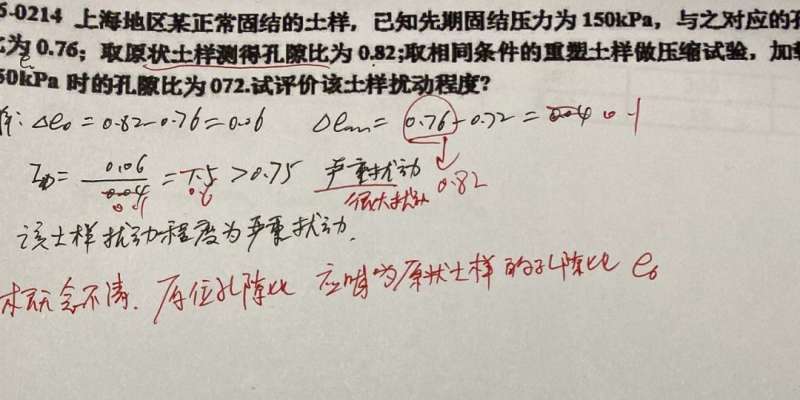 5-0214 上海地区某正常固结的土样，已知先期固结压力为150kPa，与之对应的孔
比为0.76；取原状土样测得孔隙比为0.82;取相同条件的重塑土样做压缩试验，加载
50kPa时的孔隙比为072.试评价该土样扰动程度？
解: Δe₀ = 0.82-0.76 = 0.06 Δem = 0.76-0.72 = 0.04 0.1
I_D = 0.06/0.04 = 1.5 > 0.75 严重扰动 0.82
0.1 0.6 很大扰动
该土样扰动程度为严重扰动.
概念不清. 原位孔隙比 应为原状土样的孔隙比 e₀